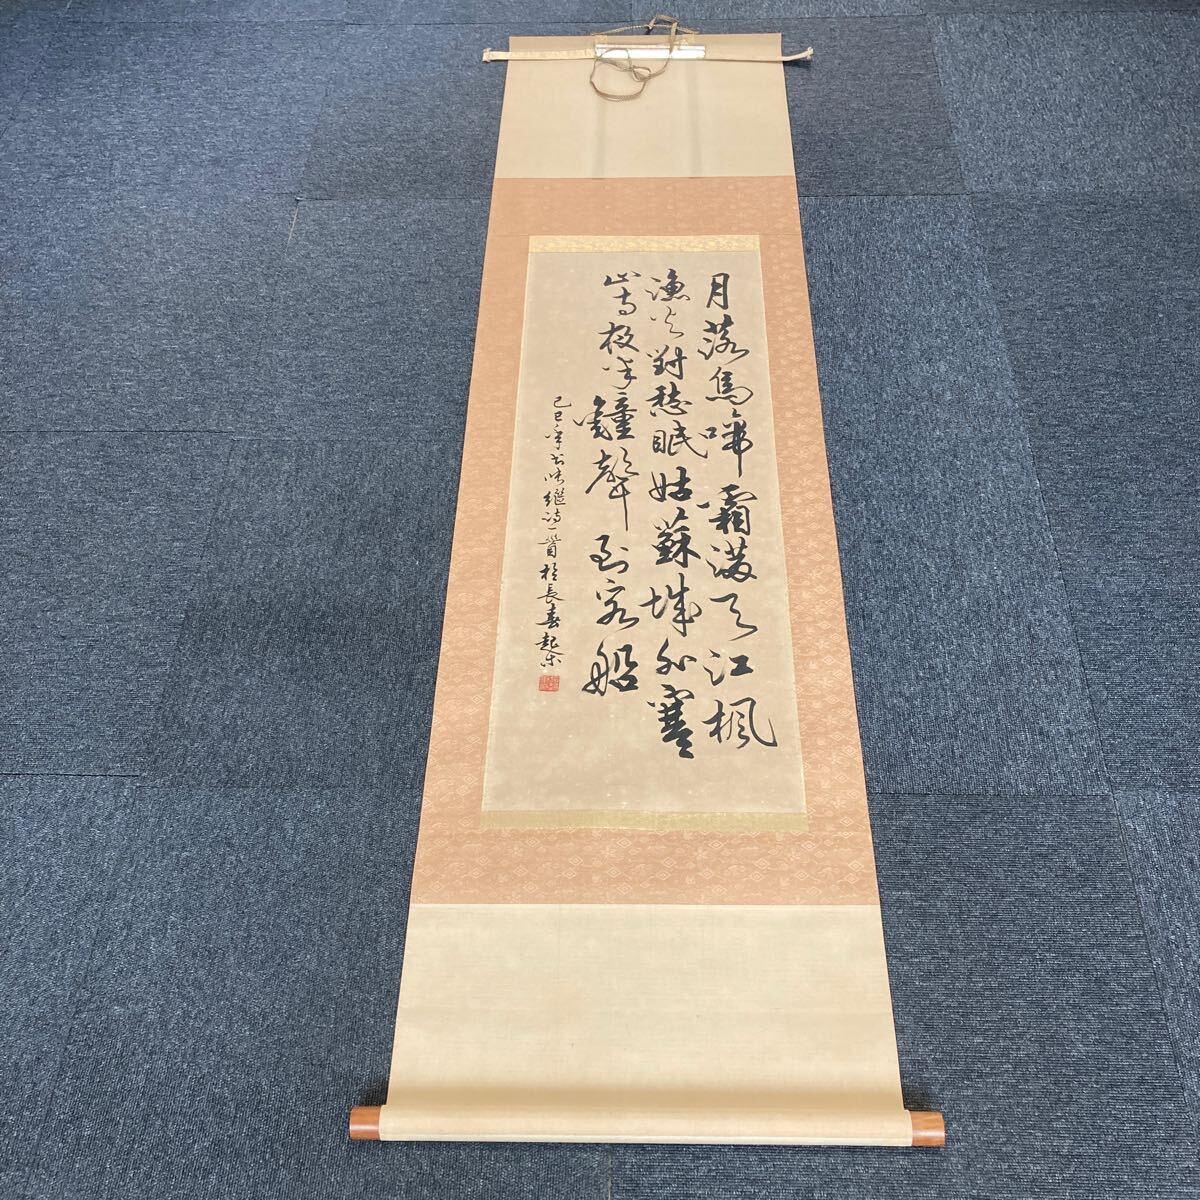 月落烏啼霜滿天江楓
漁火對愁眠姑蘇城外寒
山寺夜半鐘聲到客船
己巳年书張繼诗一首於長春